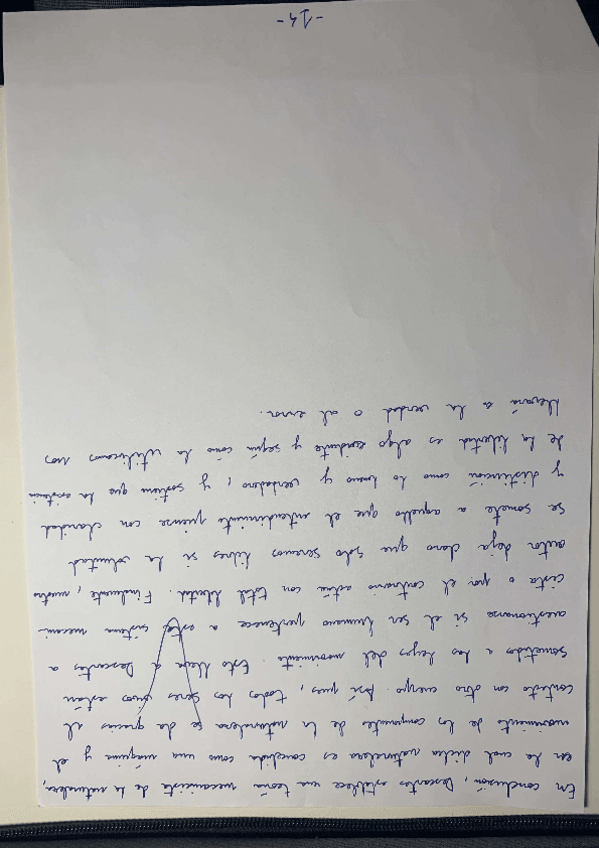 En conclusión, Descartes establece una teoría mecanicista de la naturaleza,
en la cual dicha naturaleza es concebida como una máquina y el
movimiento de los componentes de la naturaleza se da gracias al
contacto con otro cuerpo. Así pues, todos los seres vivos están
sometidos a las leyes del movimiento. Esto llega a Descartes a
cuestionarse si el ser humano pertenece a este sistema mecani-
cista o por el contrario actúa con total libertad. Finalmente, nuestro
autor deja claro que solo seremos libres si la voluntad
se somete a aquello que el entendimiento piense con claridad
y distinción como lo bueno y verdadero, y sostiene que la existencia
de la libertad es algo evidente y según cómo la utilicemos nos
llevará a la verdad o al error.
-14-